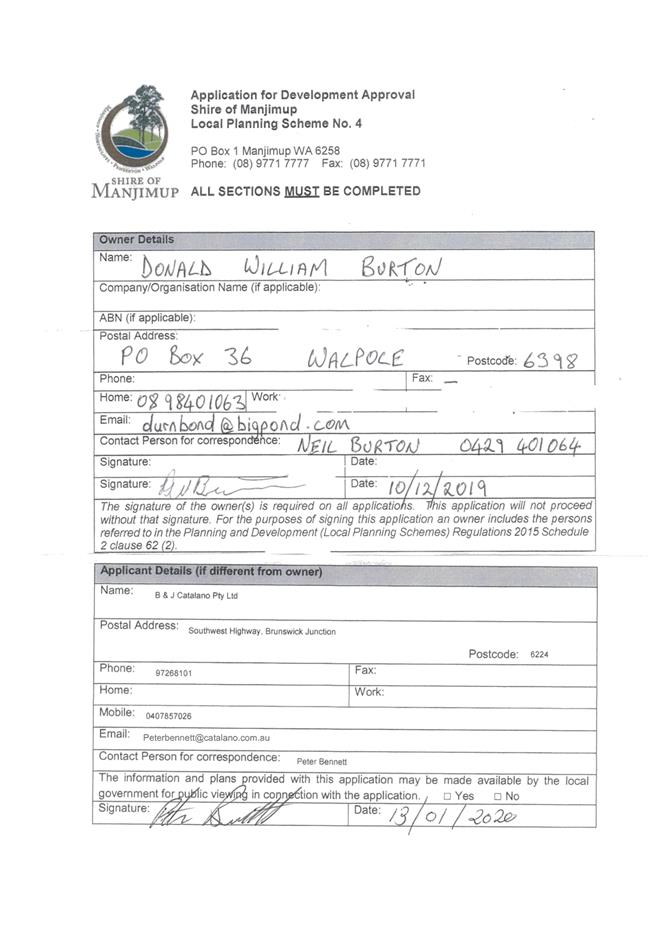 Application for Development Approval
Shire of Manjimup
Local Planning Scheme No. 4
PO Box 1 Manjimup WA 6258
Phone: (08) 9771 7777 Fax: (08) 9771 7771
SHIRE OF
MANJIMUP
ALL SECTIONS MUST BE COMPLETED
Owner Details
Name: DONALD WILLIAM BURTON
Company/Organisation Name (if applicable):
ABN (if applicable):
Postal Address:
PO Box 36 WALPOLE Postcode: 6398
Phone: Fax: —
Home: 08 98401063 Work:
Email: durnbond@bigpond.com
Contact Person for correspondence: NEIL BURTON 0429 401064
Signature: Date:
Signature: Date: 10/12/2019
The signature of the owner(s) is required on all applications. This application will not proceed
without that signature. For the purposes of signing this application an owner includes the persons
referred to in the Planning and Development (Local Planning Schemes) Regulations 2015 Schedule
2 clause 62 (2).
Applicant Details (if different from owner)
Name: B & J Catalano Pty Ltd
Postal Address: Southwest Highway, Brunswick Junction
Postcode: 6224
Phone: 97268101 Fax:
Home: Work:
Mobile: 0407857026
Email: Peterbennett@catalano.com.au
Contact Person for correspondence: Peter Bennett
The information and plans provided with this application may be made available by the local
government for public viewing in connection with the application. □ Yes □ No
Signature: Date: 13/01/2020